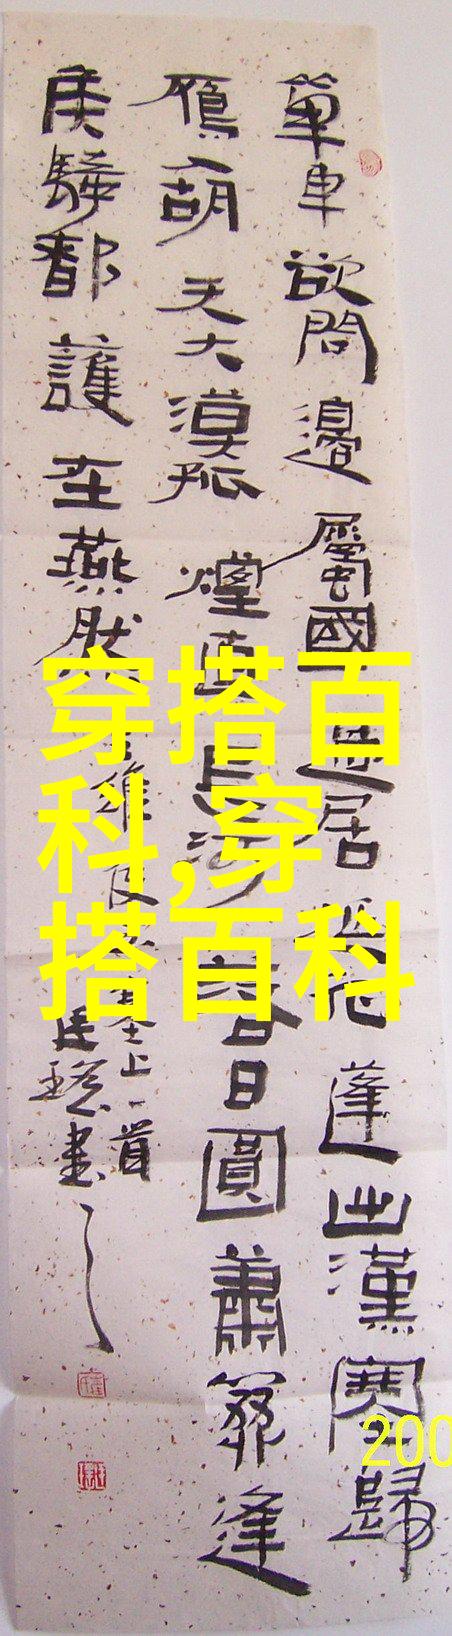 單車欲問邊屬國過居延征蓬出漢塞歸
鴈入胡天大漠孤煙直長河落日圓蕭關逢
候騎都護在燕然
王維使至塞上一首
書
穿搭百
科,穿
搭百科
200